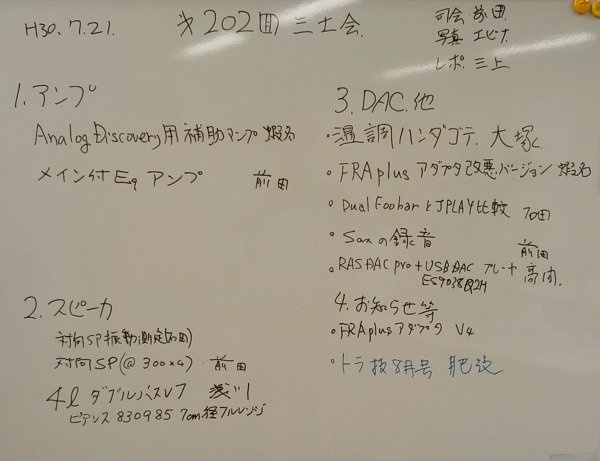 H30.7.21.
第202回 三土会.
司会 前田.
写真 エビナ
レポ. 三上
1. アンプ
Analog Discovery用補助アンプ 蝦名
メイン付Eq アンプ 前田
2. スピーカ
対向SP振動測定
対向SP(@300×4) 前田
4ℓ ダブルバスレフ 浅川
ピアレス 830985 7cm径フルレンジ
3. DAC.他
・温調ハンダゴテ. 大塚.
・FRAplus アダプタ改悪バージョン 蝦名
・Dual Foobar と JPLAY比較
・Saxの録音 前田
・RASDAC pro+USBDAC
ES9038Q2M
4. お知らせ等
・FRAplusアダプタ V4
・トラ技8月号 肥後